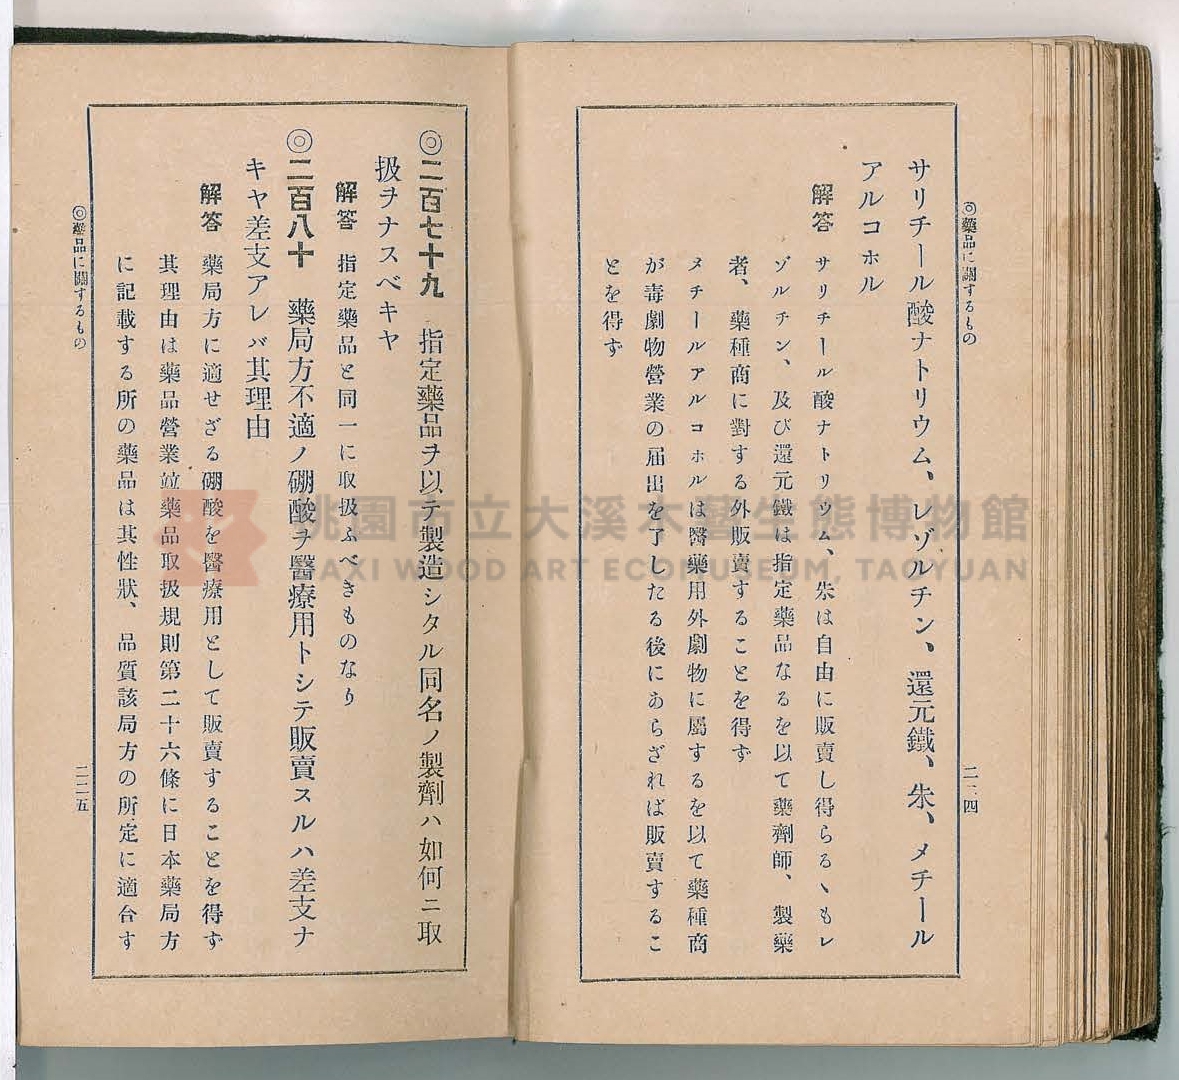 ◎藥品に關するもの
二二四
サリチール酸ナトリウム、レゾルチン、還元鐵、朱、メチール
アルコホル
解答 サリチール酸ナトリウム、朱は自由に販賣し得らるゝもレ
ゾルチン、及び還元鐵は指定藥品なるを以て藥劑師、製藥
者、藥種商に對する外販賣することを得ず
メチールアルコホルは醫藥用外劇物に屬するを以て藥種商
が毒劇物營業の届出を了したる後にあらざれば販賣するこ
とを得ず
◎二百七十九 指定藥品ヲ以テ製造シタル同名ノ製劑ハ如何ニ取
扱ヲナスベキヤ
解答 指定藥品と同一に取扱ふべきものなり
◎二百八十 藥局方不適ノ硼酸ヲ醫療用トシテ販賣スルハ差支ナ
キヤ差支アレバ其理由
解答 藥局方に適せざる硼酸を醫療用として販賣することを得ず
其理由は藥品營業竝藥品取扱規則第二十六條に日本藥局方
に記載する所の藥品は其性狀、品質該局方の所定に適合す
◎藥品に關するもの
二二五
桃園市立大溪木藝生態博物館
DAXI WOOD ART ECOMUSEUM, TAOYUAN